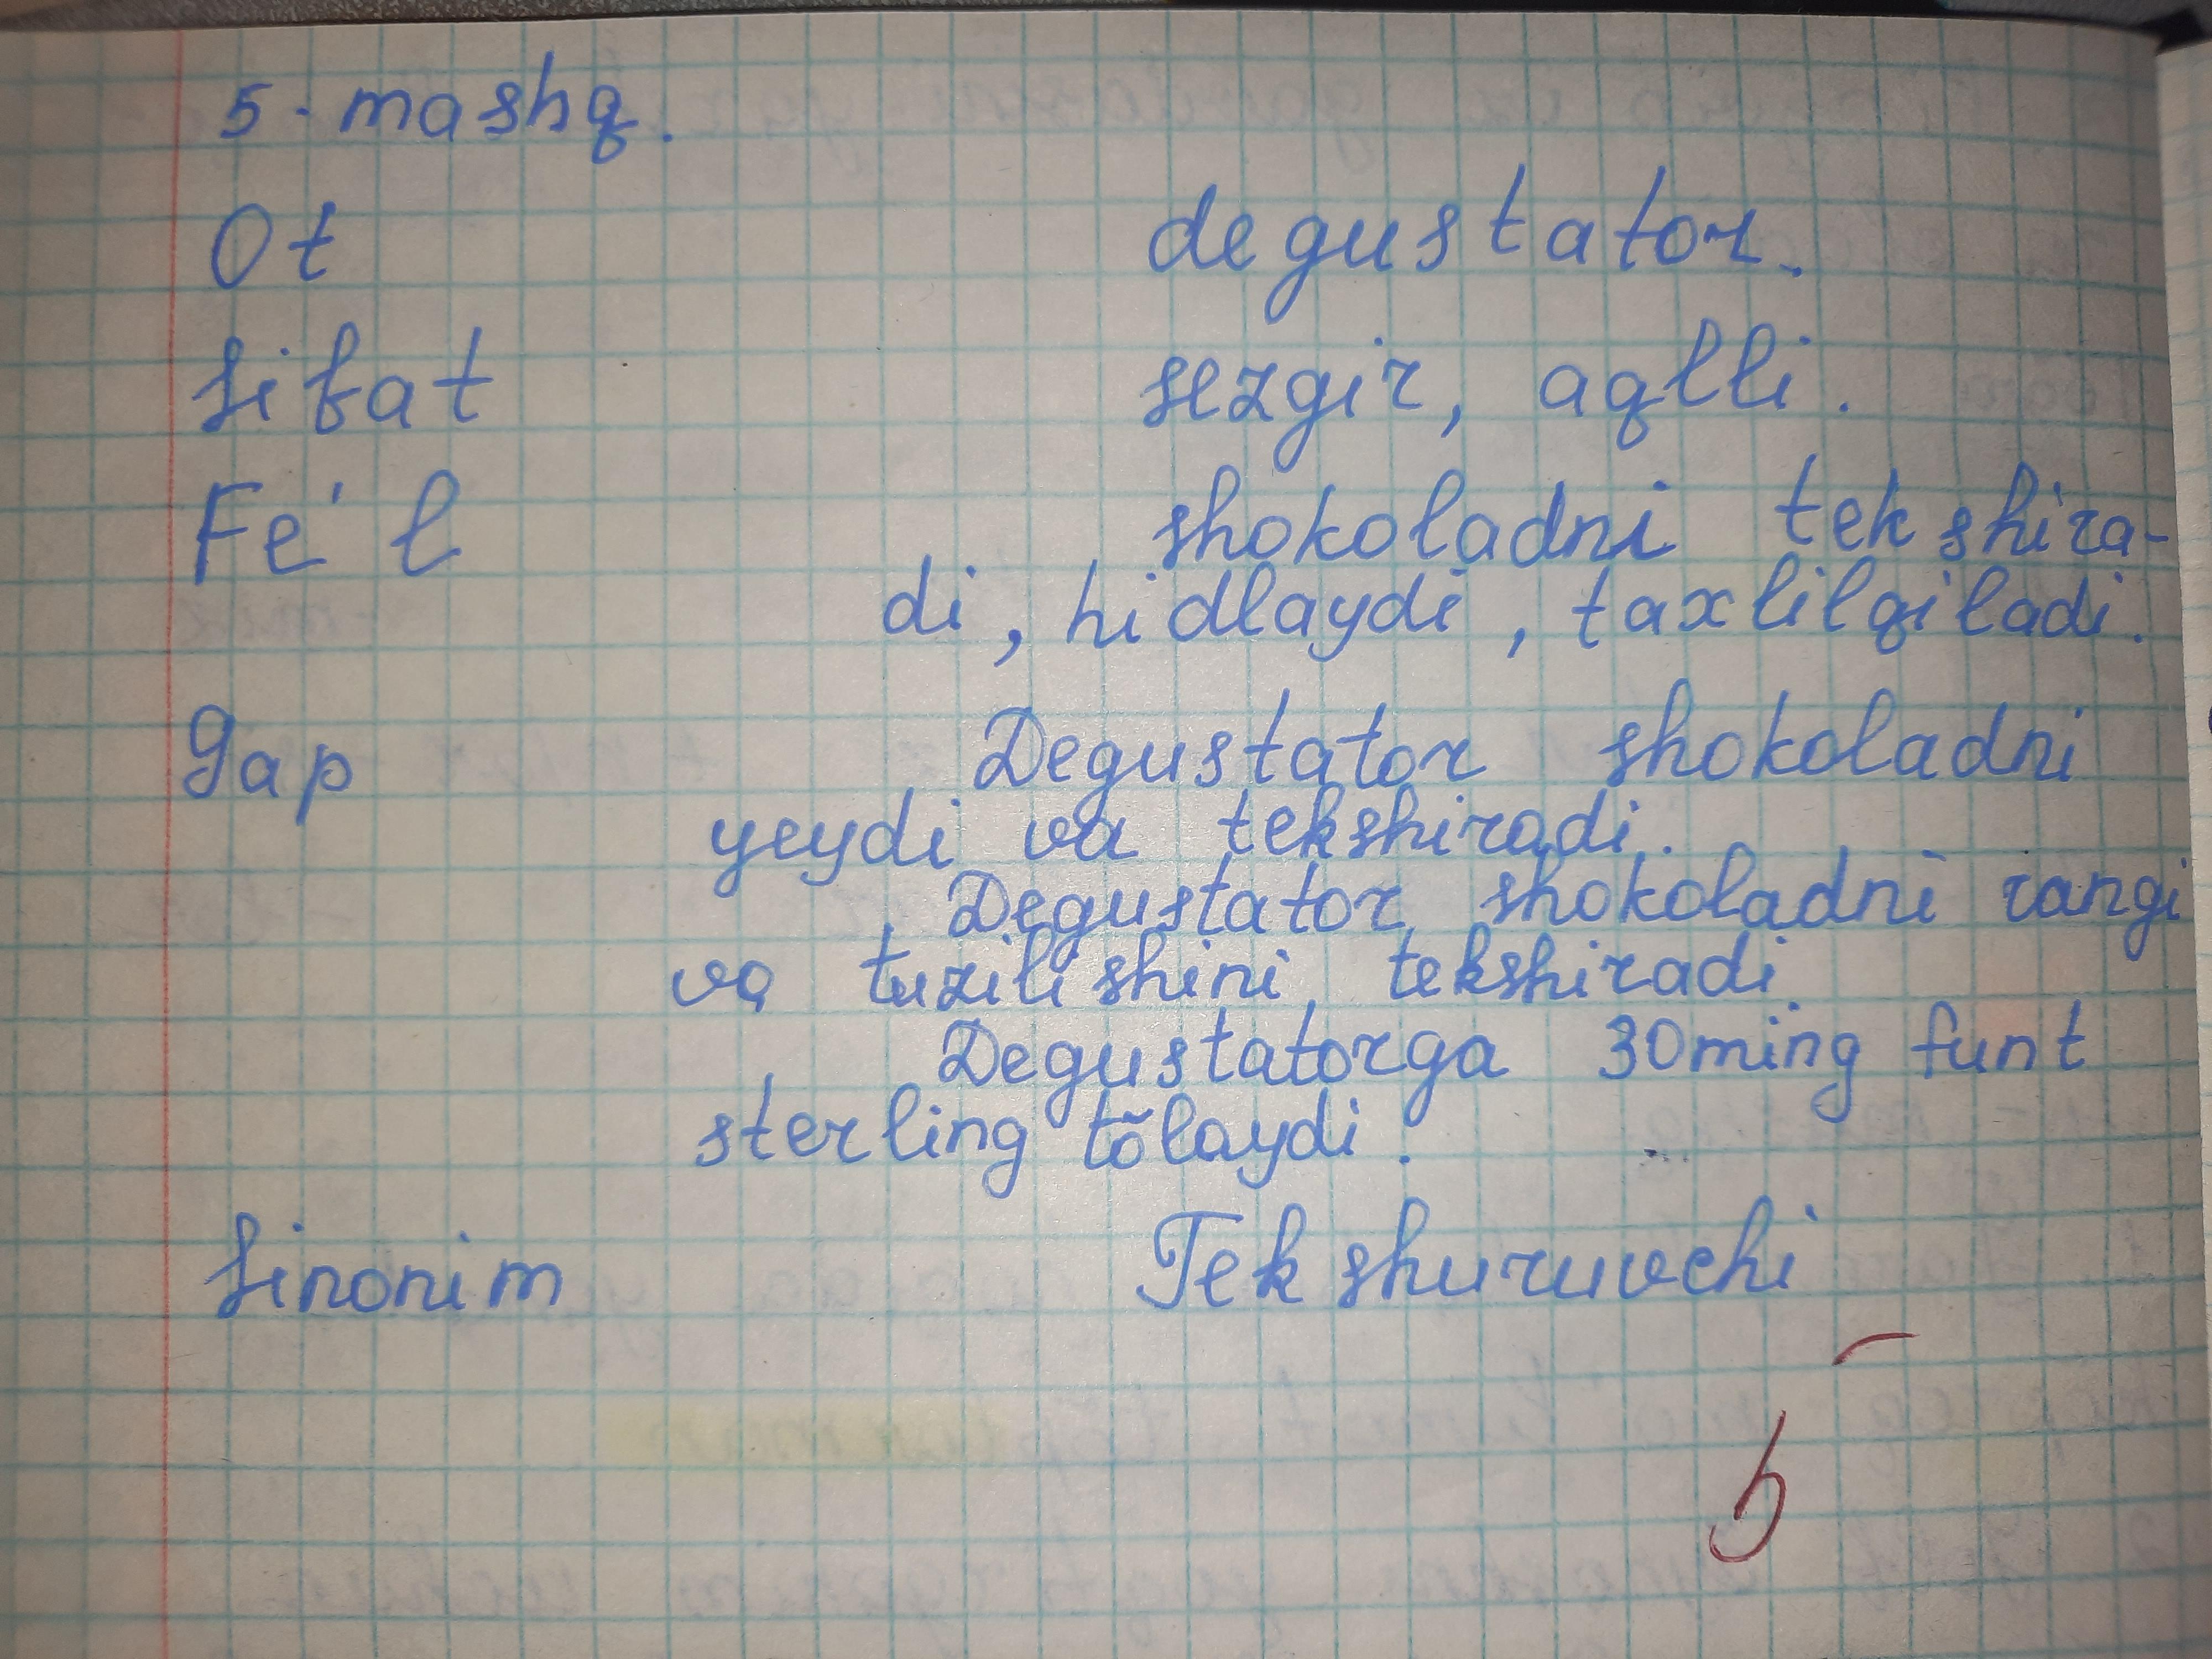 5-mashq.
Ot degustator.
Sifat sezgir, aqlli.
Fe'l shokoladni tekshira-
di, hidlaydi, taxlilqiladi.
Gap Degustator shokoladni
yeydi va tekshiradi.
Degustator shokoladni rangi
va tuzilishini tekshiradi.
Degustatorga 30ming funt
sterling tõlaydi.
Sinonim Tekshuruvchi
5